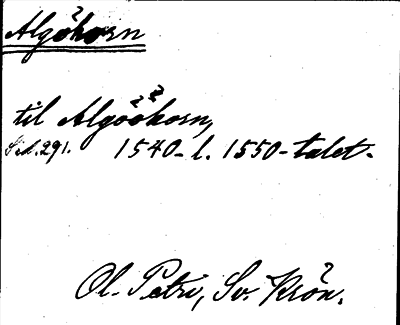 Algökorn
til Algöökorn,
Sid. 291. 1540- l. 1550-talet.
Ol. Petri, Sv. Krön.